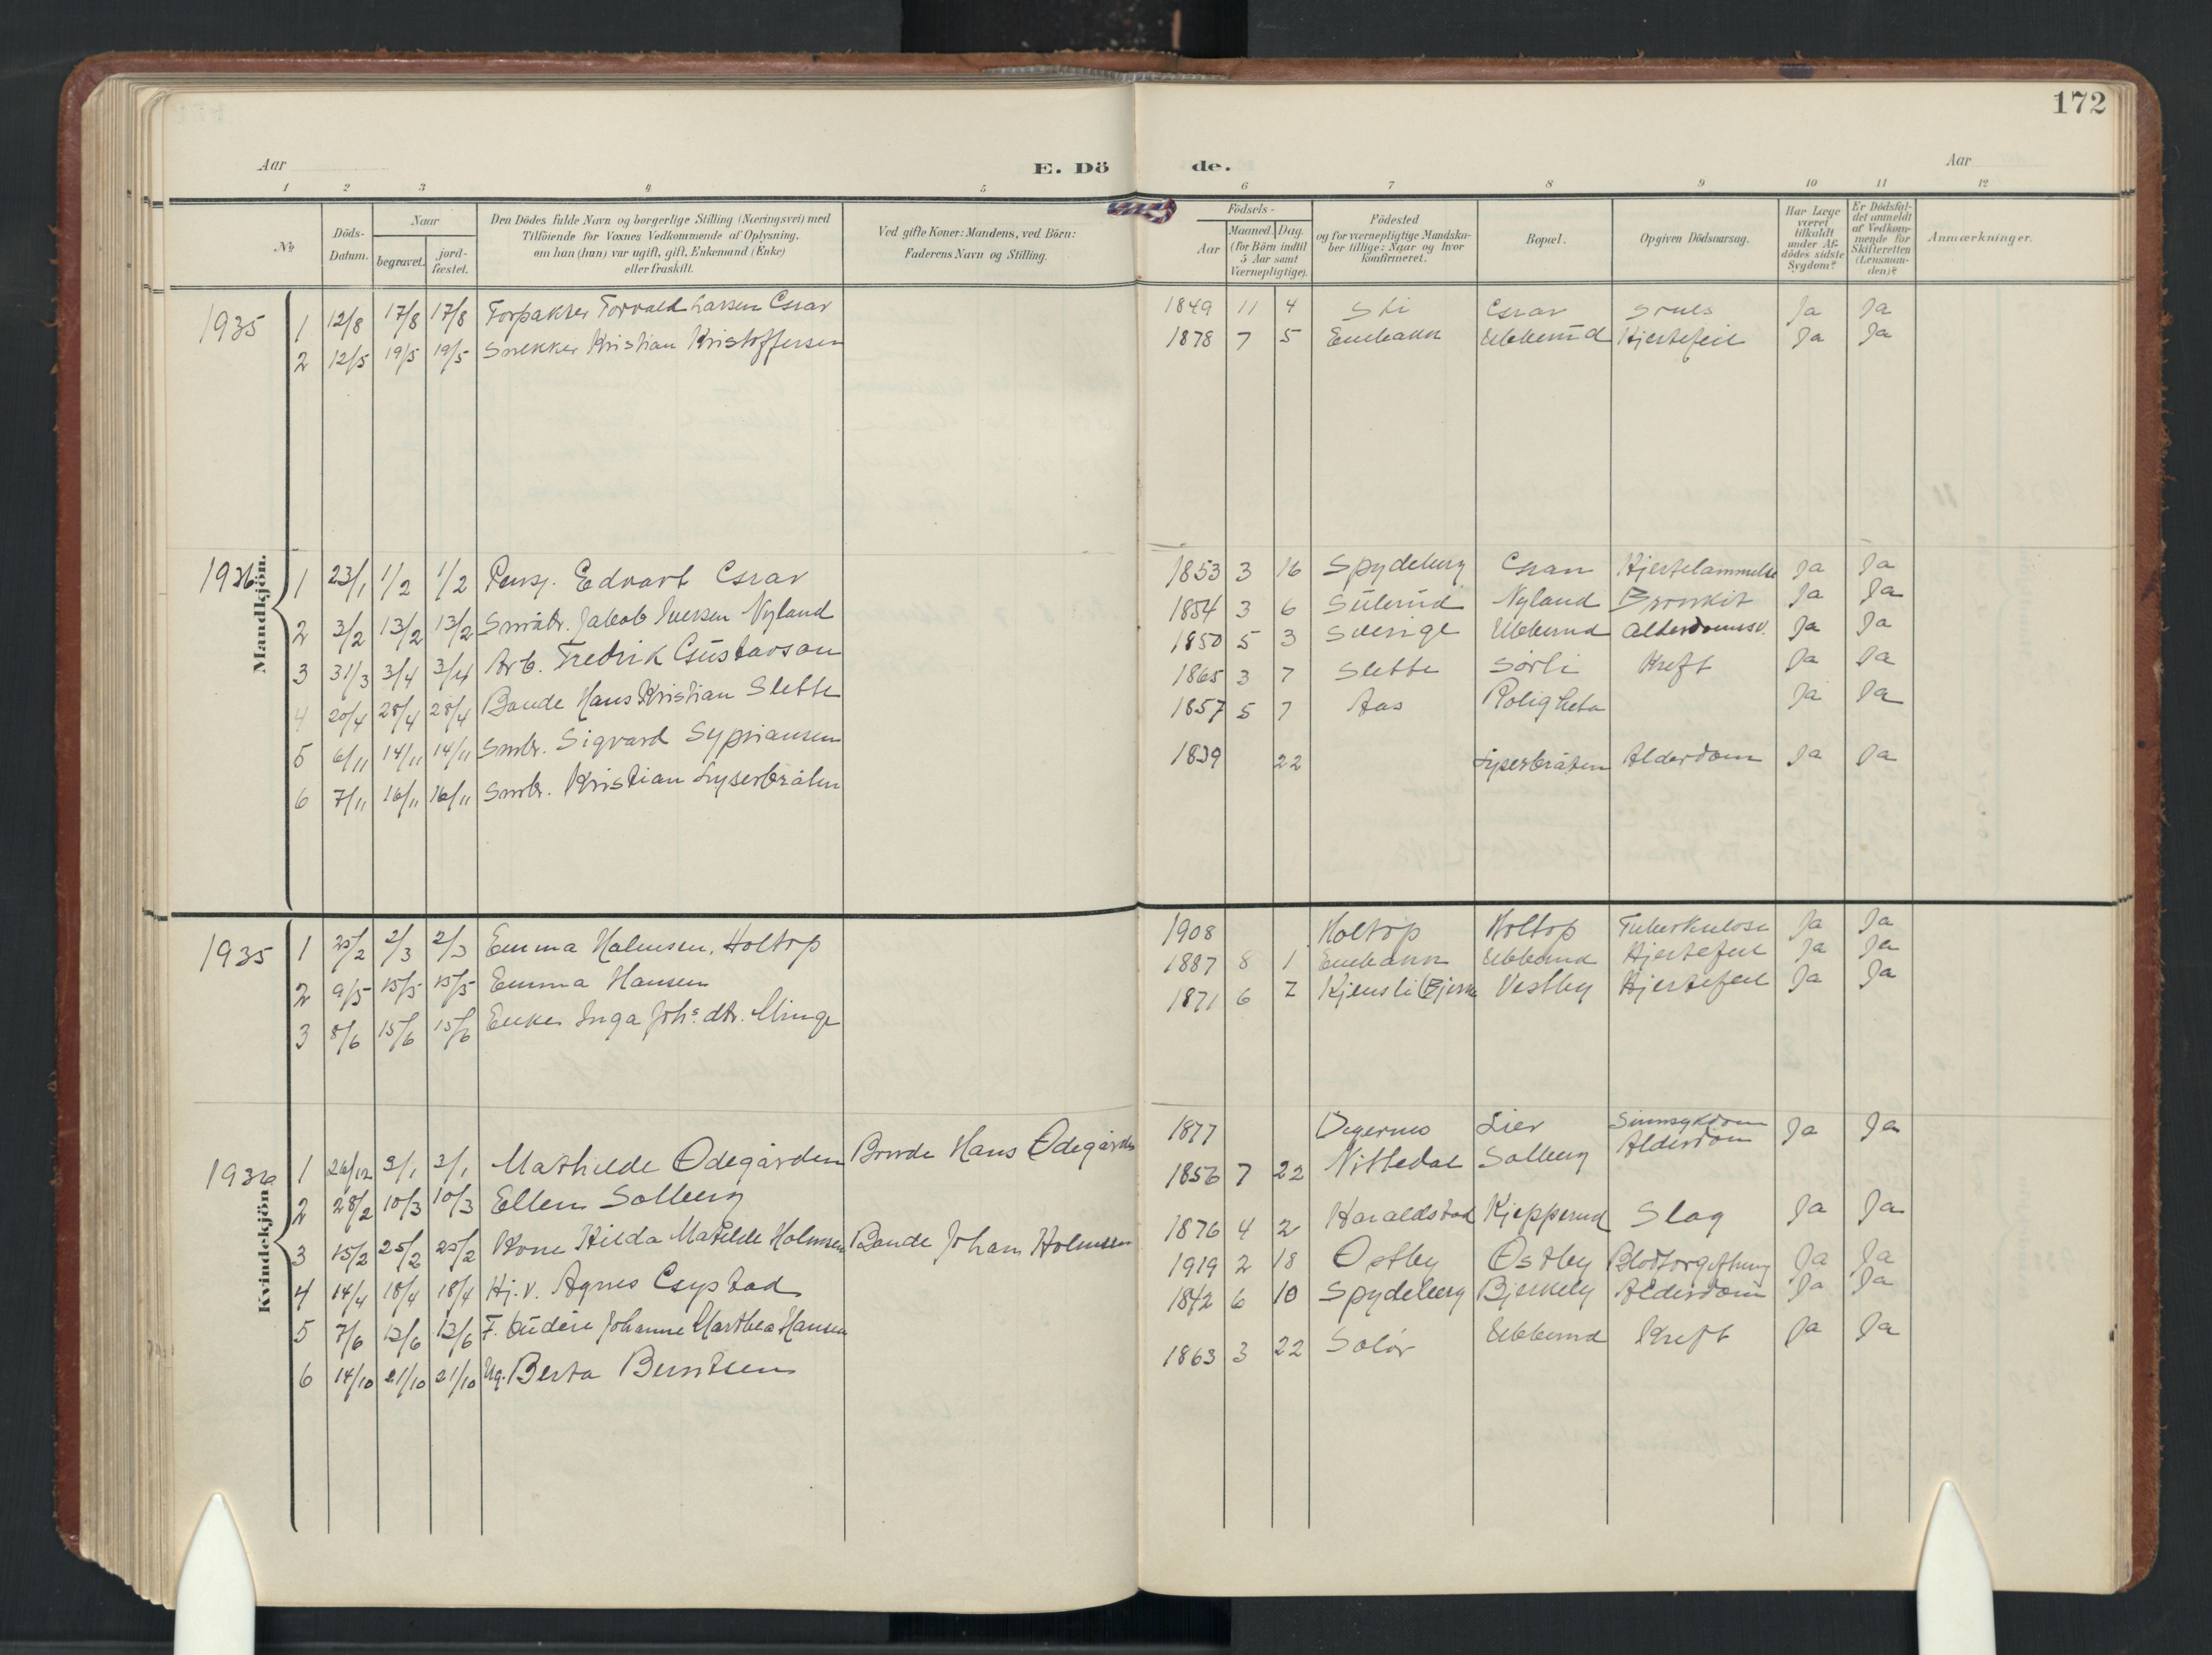 172
Aar
E. Dö
de.
Aar
1 2 3 4 5 6 7 8 9 10 11 12
No
Döds-Datum.
Naar
begravet.
jord-fæstet.
Den Dödes fulde Navn og borgerlige Stilling (Næringsvei) med
Tilföiende for Voxnes Vedkommende af Oplysning,
om han (hun) var ugift, gift, Enkemand (Enke)
eller fraskilt.
Ved gifte Koner: Mandens, ved Börn:
Faderens Navn og Stilling.
Födsels-
Aar
Maaned. Dag.
(for Börn indtil
5 Aar samt
Værnepligtige).
Födested
og for værnepligtige Mandska-
ber tillige: Naar og hvor
konfirmeret.
Bopæl.
Opgiven Dödsaarsag.
Har Læge
været
tilkaldt
under Af-
dödes sidste
Sygdom?
Er Dödsfal-
det anmeldt
af Vedkom-
mende for
Skifteretten
(Lensman-
den)?
Anmærkninger.
Mandkjön.
1935 1 12/8 17/8 17/8 Forpakter Torvald Larsen 1849 11 4 Ja Ja
2 12/5 19/5 19/5 Snekker Kristian Kristoffersen 1878 7 5 Enebakk Ubberud Hjertefeil Ja Ja
1936 1 23/1 1/2 1/2 Pensj. Edvart 1853 3 16 Spydeberg Hjertelammelse Ja Ja
2 3/2 13/2 13/2 Småbr. Jakob Iversen Nyland 1854 3 6 Sulerud Nyland Bronkit Ja Ja
3 31/3 3/4 3/4 Arb. Fredrik Gustavson 1850 5 3 Sverige Ubberud Alderdomssv. Ja Ja
4 20/4 28/4 28/4 Bonde Hans Kristian Slette 1865 3 7 Slette Sörli Kreft Ja Ja
5 6/11 14/11 14/11 Smbr. Sigvard Sypriansen 1857 5 7 Aas Roligheta Ja Ja
6 7/11 16/11 16/11 Smbr. Kristian Lyserbråten 1839 22 Lyserbråten Alderdom Ja Ja
Kvindekjön.
1935 1 25/2 2/3 2/3 Emma Halmsen, Holtop 1908 Holtop Holtop Tuberkulose Ja Ja
2 9/5 15/5 15/5 Emma Hansen 1887 8 1 Enebakk Ubberud Hjertefeil Ja Ja
3 8/6 15/6 15/6 Enke Inga Johs. dtr. Minge 1871 6 2 Kjensli Vestby Hjertefeil Ja Ja
1936 1 26/12 3/1 3/1 Mathilde Ödegården Bonde Hans Ödegården 1877 Degernes Lier Sinnsykdom Ja Ja
2 28/2 10/3 10/3 Ellen Solberg 1856 7 22 Nittedal Solberg Alderdom
3 15/2 25/2 25/2 Kone Hilda Matilde Holmsen Bonde Johan Holmsen 1876 4 2 Haraldstad Kjepperud Slag Ja Ja
4 14/4 18/4 18/4 Hj. v. Agnes 1919 2 18 Östby Östby Blodforgiftning Ja Ja
5 7/6 13/6 13/6 Johanne Marthea Hansen 1842 6 10 Spydeberg Bjerkely Alderdom Ja Ja
6 14/10 21/10 21/10 Ug. Berta Berntsen 1863 3 22 Solör Ubberud Kreft Ja Ja